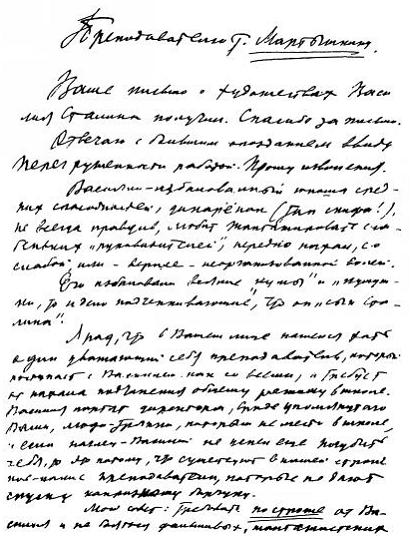 Преподавателю т. Мартышину.
Ваше письмо о художествах Васи
лия Сталина получил. Спасибо за письмо.
Отвечаю с большим опозданием ввиду
перегруженности работой. Прошу извинения.
Василий – избалованный юноша сред-
них способностей, дикарёнок (тип скифа!),
не всегда правдив, любит шантажировать сла-
беньких "руководителей", нередко нахал, со
слабой или – вернее – неорганизованной волей.
Его избаловали всякие "кумы" и "кумуш-
ки", то и дело подчеркивающие, что он "сын Ста-
лина".
Я рад, что в Вашем лице нашелся хоть
один уважающий себя преподаватель, который
поступает с Василием как со всеми, и требует
от нахала подчинения общему режиму в школе.
Василия портят директора, вроде упомянутого
Вами, люди-тряпки, которым не место в школе,
и если нахал-Василий не успел еще погубить
себя, то это потому, что существуют в нашей стране
кое-какие преподаватели, которые не дают
спуску капризному барчуку.
Мой совет: требовать построже от Ва-
силия и не бояться фальшивых, шантажистских